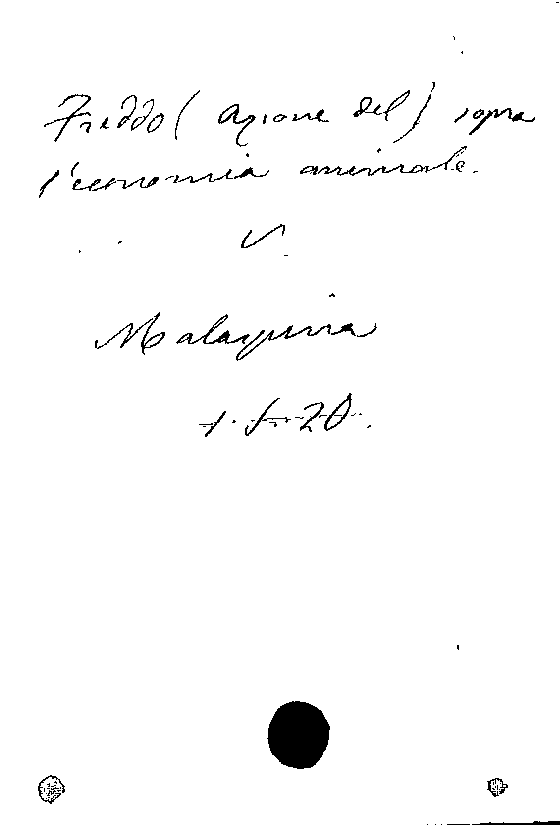 Freddo (azione del) sopra
l'economia animale.
V.
Malagunia
1. f. 20.